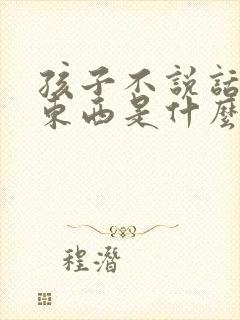 孩子不说話
東西是什麼
程潛